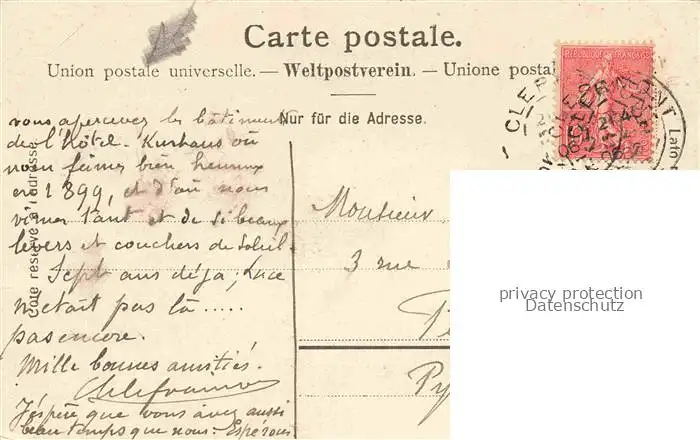 Carte postale.
Union postale universelle. — Weltpostverein. — Unione postal
Nur für die Adresse.
Côté réservé à l'adresse
REPUBLIQUE FRANÇAISE
CLERMONT
Lato
vous apercevez les bâtiments
de l'Hôtel-Kurhaus où
nous fûmes bien heureux
en 1899, et d'où nous
vîmes tant et de si beaux
levers et couchers de soleil.
Sept ans déjà; Luce
n'était pas là .....
pas encore.
Mille bonnes amitiés.
J'espère que vous avez aussi
beau temps que nous. Espérons
Monsieur
3 rue
Py
privacy protection
Datenschutz